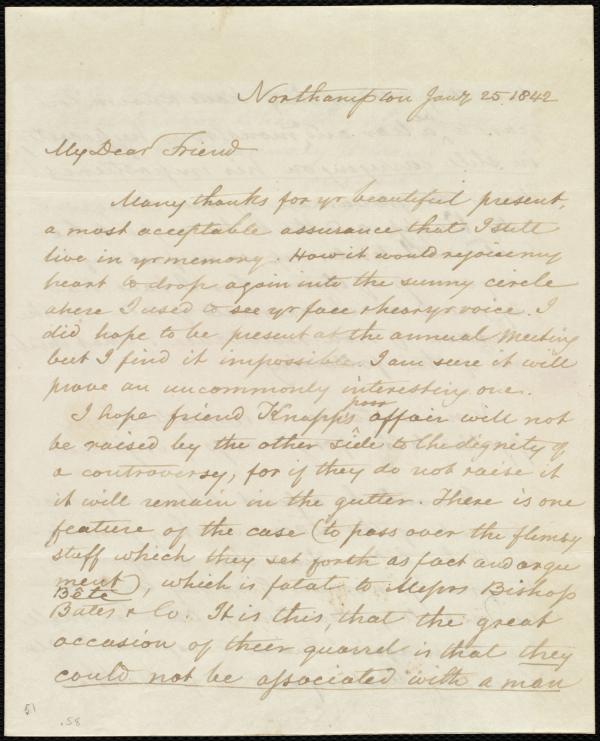 Northampton Jany 25. 1842
My Dear Friend
Many thanks for yr beautiful present,
a most acceptable assurance that I still
live in yr memory. How it would rejoice my
heart to drop again into the sunny circle
where I used to see yr face & hear yr voice. I
did hope to be present at the annual meeting
but I find it impossible. I am sure it will
prove an uncommonly interesting one.
I hope friend Knapp's poor affair will not
be raised by the other side to the dignity of
a controversy, for if they do not raise it
it will remain in the gutter. There is one
feature of the case (to pass over the flimsy
stuff which they set forth as fact and argu
ment), which is fatal to Messrs Bishop
Bates & Co. It is this, that the great
occasion of their quarrel is that they
could not be associated with a man
51
.58